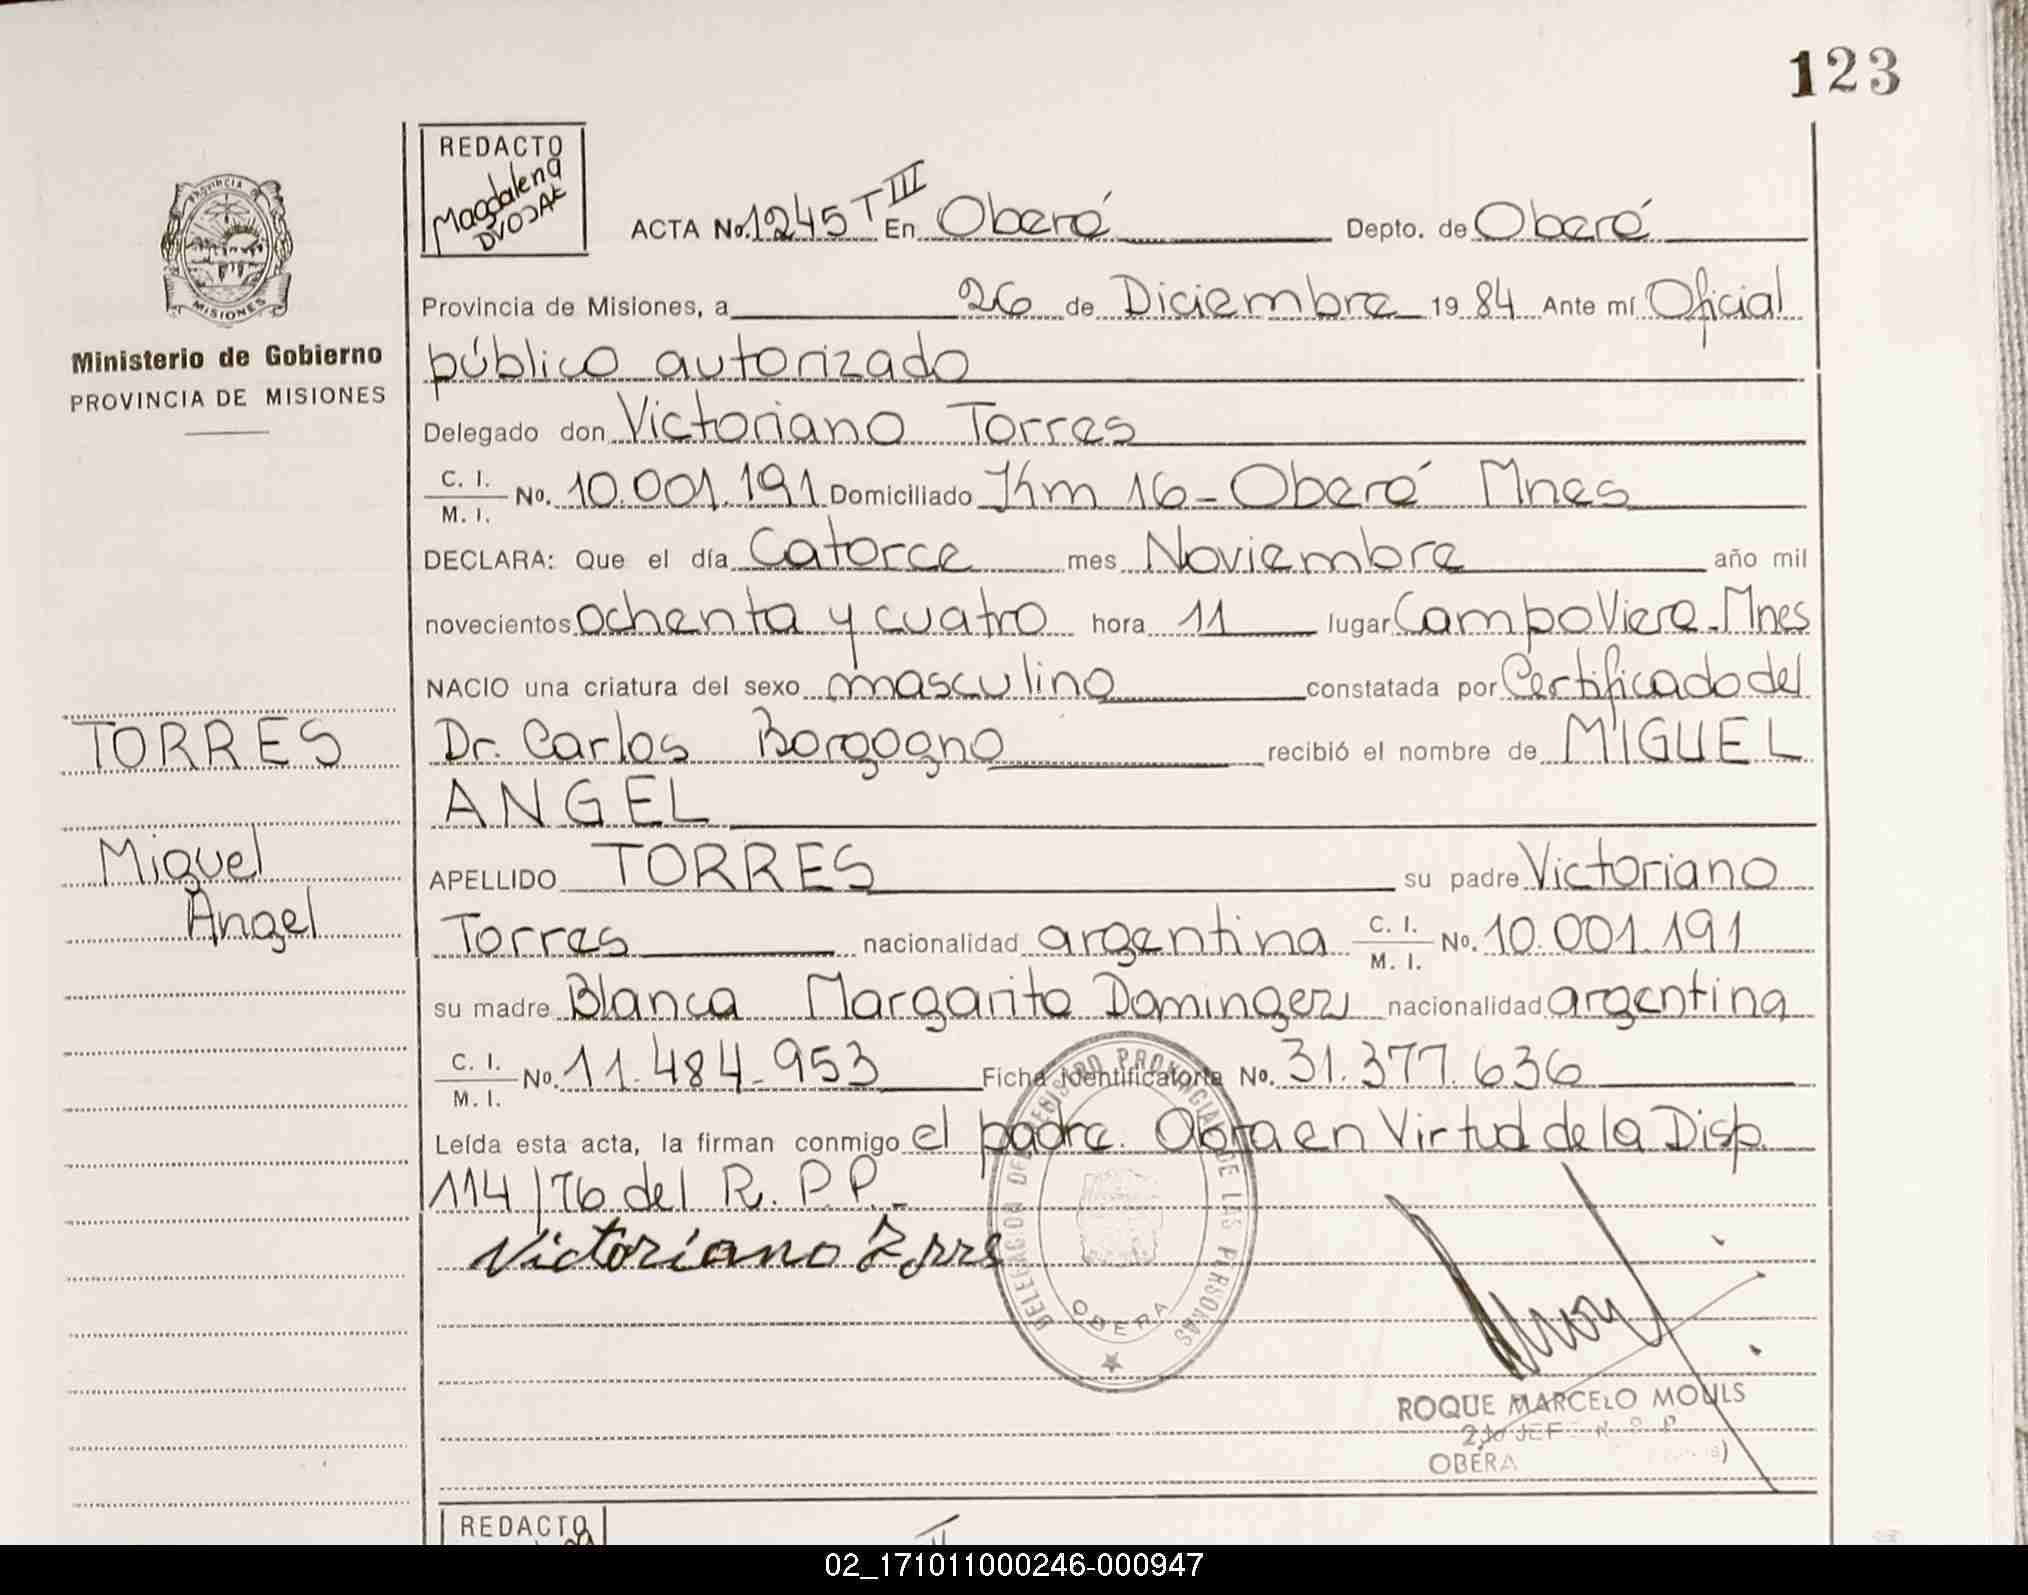 123
REDACTO
Magdalena
DVOJAK
PROVINCIA
MISIONES
Ministerio de Gobierno
PROVINCIA DE MISIONES
ACTA No. 1245 T III En Oberá Depto. de Oberá
Provincia de Misiones, a 26 de Diciembre 19 84 Ante mí Oficial
público autorizado
Delegado don Victoriano Torres
C. I. / M. I. No. 10.001.191 Domiciliado Km 16 - Oberá Mnes
DECLARA: Que el día Catorce mes Noviembre año mil
novecientos ochenta y cuatro hora 11 lugar Campo Viera - Mnes
NACIO una criatura del sexo masculino constatada por Certificado del
Dr. Carlos Borgogno recibió el nombre de MIGUEL
ANGEL
APELLIDO TORRES su padre Victoriano
Torres nacionalidad argentina C. I. / M. I. No. 10.001.191
su madre Blanca Margarita Dominguez nacionalidad argentina
C. I. / M. I. No. 11.484.953 Ficha identificatoria No. 31.377.636
Leída esta acta, la firman conmigo el padre. Obra en Virtud de la Disp.
114/76 del R.P.P.-
Victoriano Torres
TORRES
Miguel
Angel
DELEGACION DEL REGISTRO PROVINCIAL DE LAS PERSONAS
OBERA
ROQUE MARCELO MOULS
2do JEFE R. P. P.
OBERA
REDACTO
02_171011000246-000947